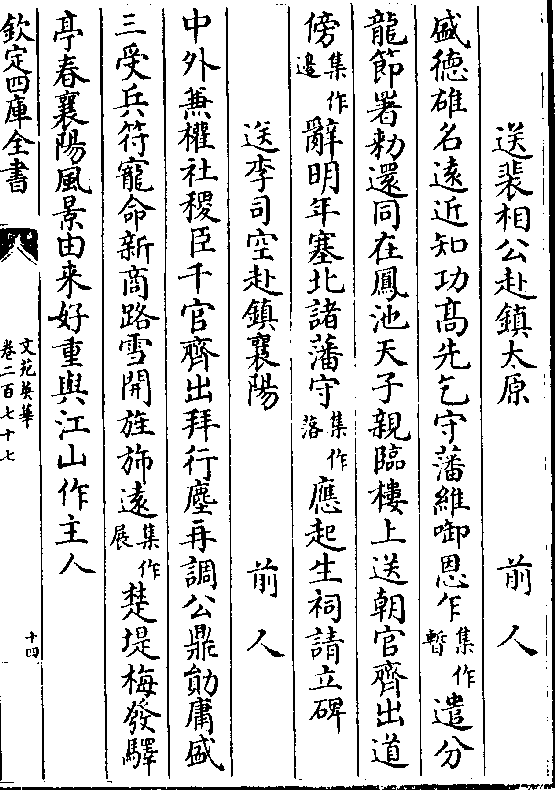 送裴相公赴鎮太原 前人
盛德雄名遠近知功髙先乞守藩維啣恩乍集作暫遣分
龍節署勅還同在鳳池天子親臨樓上送朝官齊出道
傍集作邉辭明年塞北諸藩守集作落應起生祠請立碑
送李司空赴鎮襄陽 前人
中外兼權社稷臣千官齊出拜行塵再調公鼎勛庸盛
三受兵符寵命新商路雪開旌斾遠集作展楚堤梅發驛
亭春襄陽風景由来好重與江山作主人
欽定四庫全書
文苑英華
卷二百七十七
十四